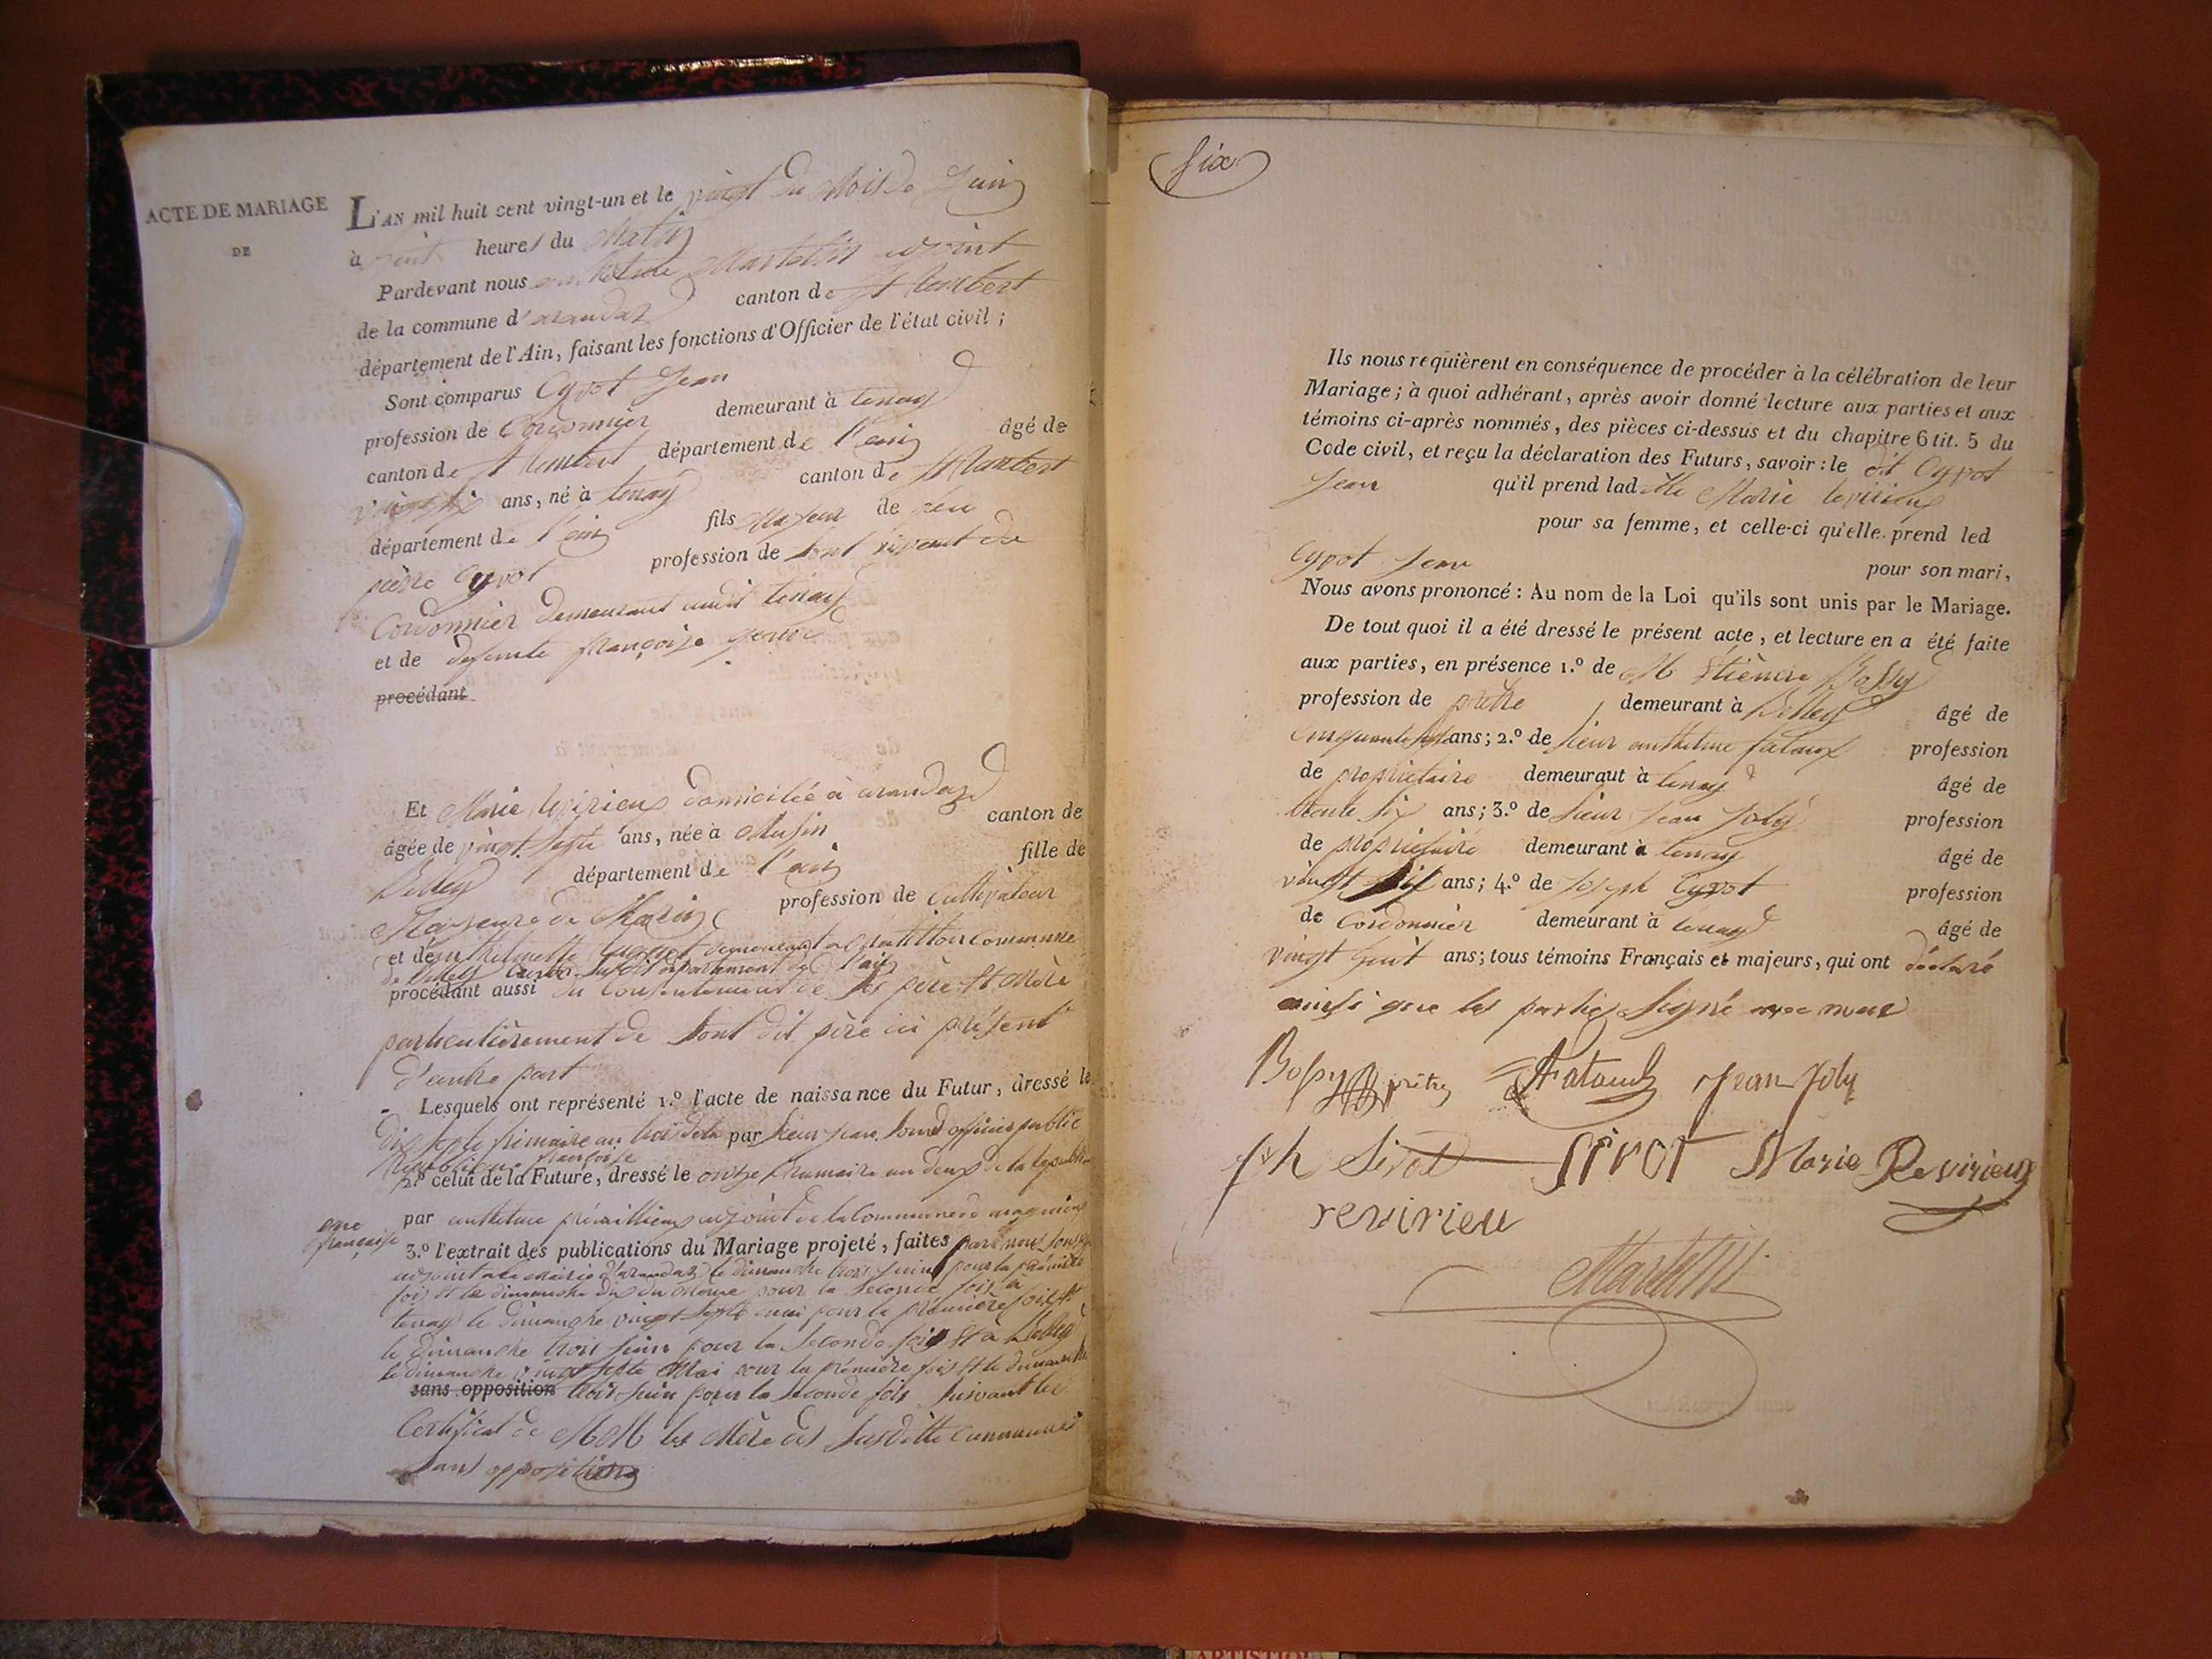 ACTE DE MARIAGE
DE
L'AN mil huit cent vingt-un et le vingt du Mois de Juin
à huit heures du Matin
Pardevant nous anthelme Martellin adjoint
de la commune d'arandaz canton de St Rambert
département de l'Ain, faisant les fonctions d'Officier de l'état civil ;
Sont comparus Cyvot Jean
profession de Cordonnier demeurant à tenay
canton de St Rambert département de l'ain âgé de
vingt six ans, né à tenay canton de St Rambert
département de l'ain fils Majeur de feu
pierre Cyvot profession de
Cordonnier demeurant audit tenay
et de defunte françoise
procédant
Et Marie Revirieux domiciliée à arandaz
âgée de vingt septe ans, née à Musin canton de
Belley département de l'ain fille de
Majeure de profession de Cultivateur
et de anthelmette demeurant a commune
de Belley susdit département de l'ain
procédant aussi du Consentement de ses père Et Mère
particulièrement de sont dit père ici présent
d'autre part
Lesquels ont représenté 1.º l'acte de naissance du Futur, dressé le
dix septe frimaire an trois de la par sieur Jean officier public
République françoise
2.º celui de la Future, dressé le onze frumaire an deux de la republi
par anthelme adjoint de la Commune de
que française
3.º l'extrait des publications du Mariage projeté, faites par nous
adjoint a la Mairie d'arandaz le dimanche trois Juin pour la première
fois Et le dimanche dix du Même pour la Seconde fois à
tenay le dimanche vingt septe mai pour la première fois Et
le dimanche trois Juin pour la Seconde fois Et à Belley
le dimanche vingt septe Mai pour la première fois Et le dimanche
sans opposition trois Juin pour la Seconde fois Suivant les
Certificat de MM les Mère des Susditte Communes
sans opposition
Six
Ils nous requièrent en conséquence de procéder à la célébration de leur
Mariage ; à quoi adhérant, après avoir donné lecture aux parties et aux
témoins ci-après nommés, des pièces ci-dessus et du chapitre 6 tit. 5 du
Code civil, et reçu la déclaration des Futurs, savoir : le dit Cyvot
Jean qu'il prend lad itte Marie Revirieux
pour sa femme, et celle-ci qu'elle prend led
Cyvot Jean pour son mari,
Nous avons prononcé : Au nom de la Loi qu'ils sont unis par le Mariage.
De tout quoi il a été dressé le présent acte, et lecture en a été faite
aux parties, en présence 1.º de M Etienne Bossy
profession de prêtre demeurant à Belley âgé de
ans ; 2.º de sieur anthelme fataux profession
de propriétaire demeurant à tenay âgé de
trente six ans ; 3.º de sieur Jean Joly profession
de propriétaire demeurant à tenay âgé de
vingt six ans ; 4.º de Joseph Cyvot profession
de Cordonnier demeurant à tenay âgé de
vingt huit ans ; tous témoins Français et majeurs, qui ont déclaré
ainsi que les parties Signé avec nous
Bossy prêtre Fataud Jean Joly
jph Sivot SIVOT Marie Revirieux
revirieu
Martellin